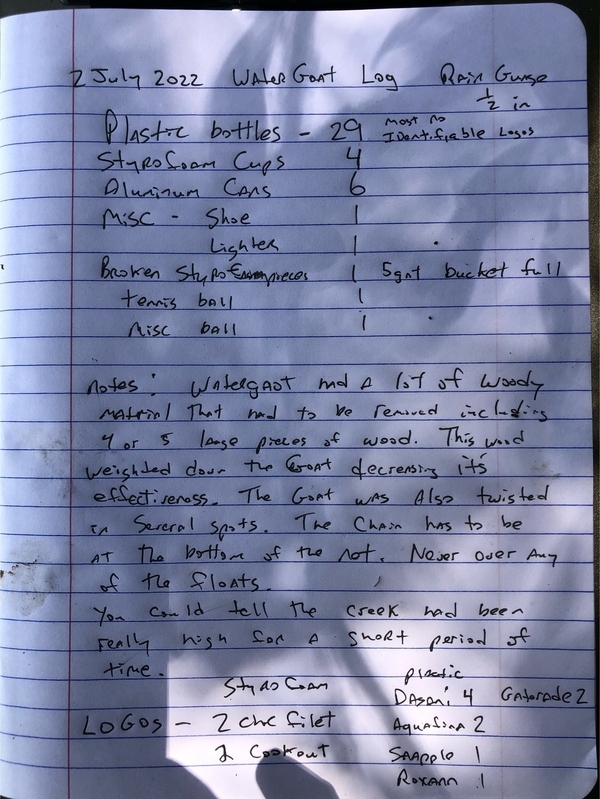 2 July 2022 WaterGoat Log Rain Guage
1/2 in
Plastic bottles - 29 most no Identifiable Logos
Styrofoam Cups 4
Aluminum Cans 6
Misc - Shoe 1
Lighter 1
Broken Styrofoam pieces 1 5gal bucket full
tennis ball 1
Misc ball 1
Notes: Watergoat had a lot of woody
material that had to be removed including
4 or 5 large pieces of wood. This wood
weighted down the Goat decreasing its
effectiveness. The Goat was also twisted
in several spots. The Chain has to be
at the bottom of the net. Never over any
of the floats.
You could tell the creek had been
really high for a short period of
time.
Styrofoam plastic
Dasani 4 Gatorade 2
LOGOS - 2 chc filet Aquafina 2
2 Cookout Snapple 1
Roxann 1